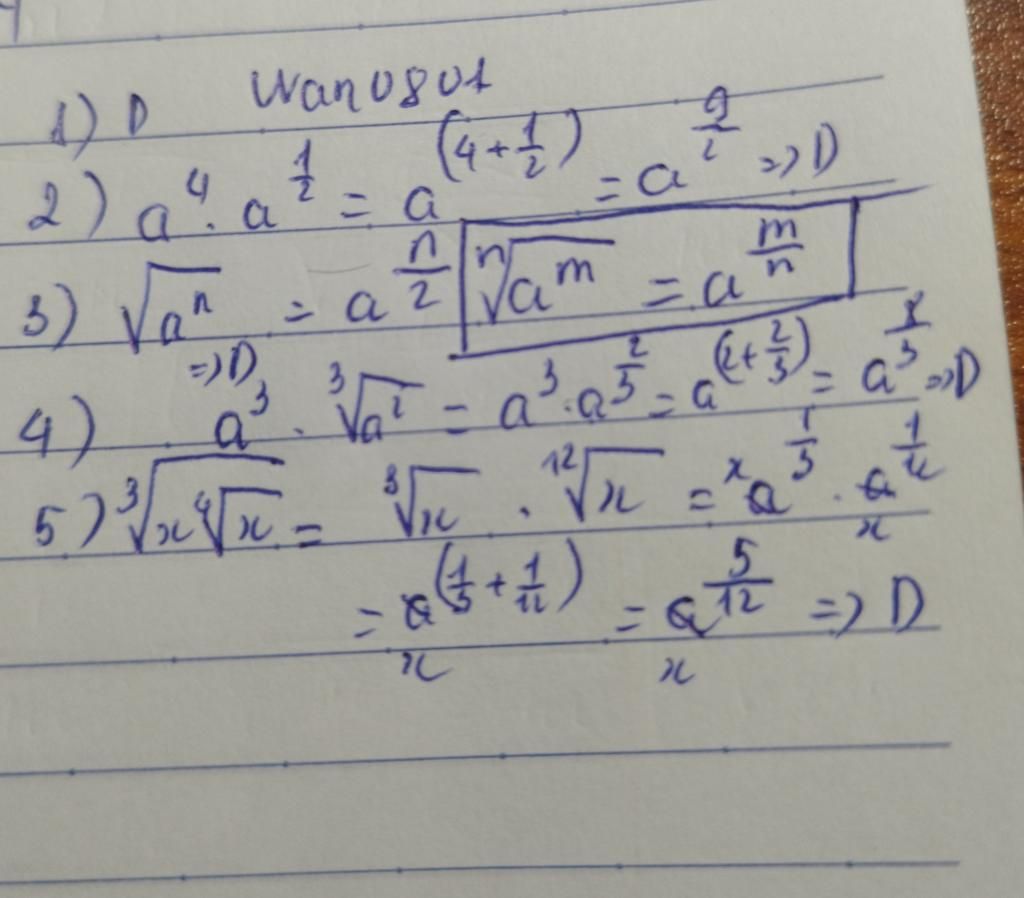 1) D Wan0801
2) a⁴ · a^(1/2) = a^(4 + 1/2) = a^(9/2) => D
3) √(aⁿ) = a^(n/2) ⁿ√(a^m) = a^(m/n)
=> D
4) a³ · ³√(a²) = a³ · a^(2/3) = a^(2 + 2/3) = a^(8/3) => D
5) ³√(x ⁴√x) = ³√x · ¹²√x = x^(1/3) · x^(1/12)
= x^(1/3 + 1/12) = x^(5/12) => D